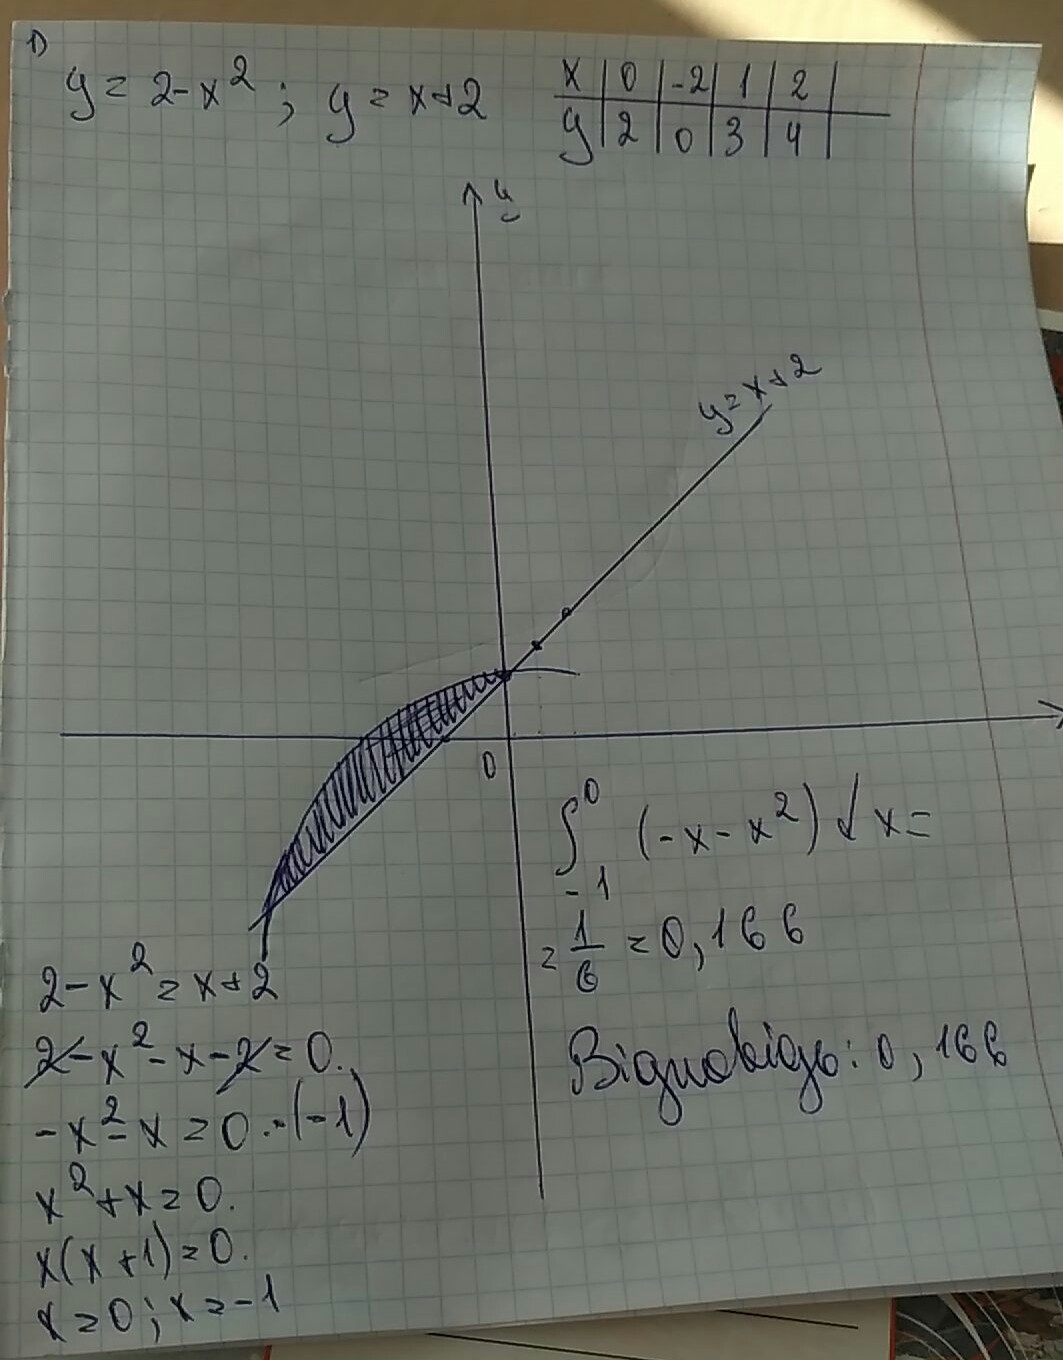 1)
y = 2-x²; y = x+2
x | 0 | -2 | 1 | 2 |
y | 2 | 0 | 3 | 4 |
y
y = x+2
0
∫₋₁⁰ (-x-x²) dx =
= 1/6 = 0,166
Відповідь: 0,166
2-x² = x+2
2-x²-x-2 = 0.
-x²-x = 0 ·(-1)
x²+x = 0.
x(x+1) = 0.
x = 0; x = -1